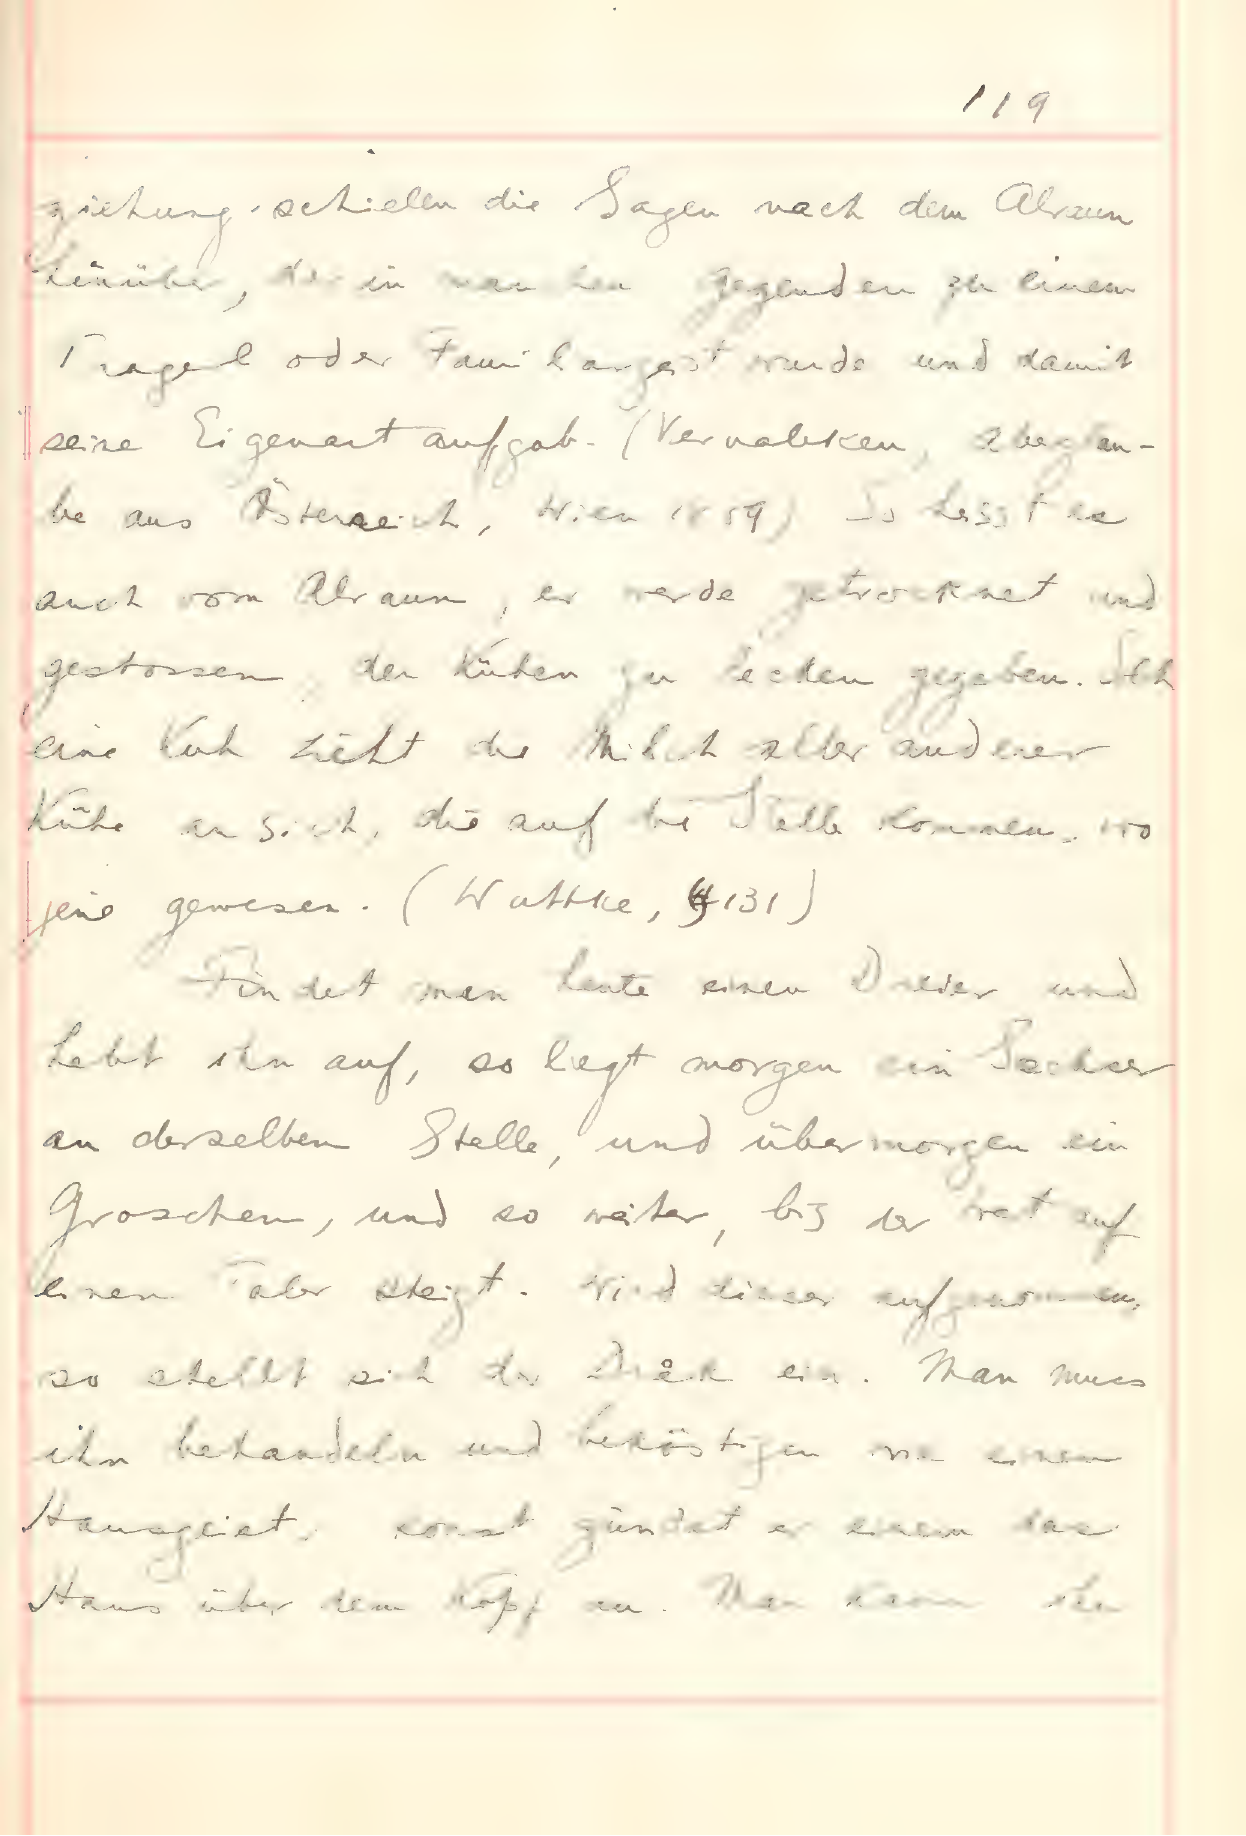 119
ziehung schielen die Sagen nach dem Alraun
hinüber, der in manchen Gegenden zu einem
Tragerl oder Familargeist wurde und damit
seine Eigenart aufgab. (Vernaleken, Aberglau-
be aus Österreich, Wien 1859) So heisst es
auch vom Alraun, er werde getrocknet und
gestossen den Kühen zu lecken gegeben. Solch
eine Kuh zieht die Milch aller anderer
Kühe an sich, die auf die Stelle kommen, wo
jene gewesen. (Wuttke, § 131)
Findet man heute einen Dreier und
hebt ihn auf, so liegt morgen ein Sechser
an derselben Stelle, und übermorgen ein
Groschen, und so weiter, bis der Wert auf
einen Taler steigt. Wird dieser aufgenommen,
so stellt sich der Drak ein. Man muss
ihn behandeln und beköstigen wie einen
Hausgeist, sonst zündet er einem das
Haus über dem Kopf an. Man kann ihn